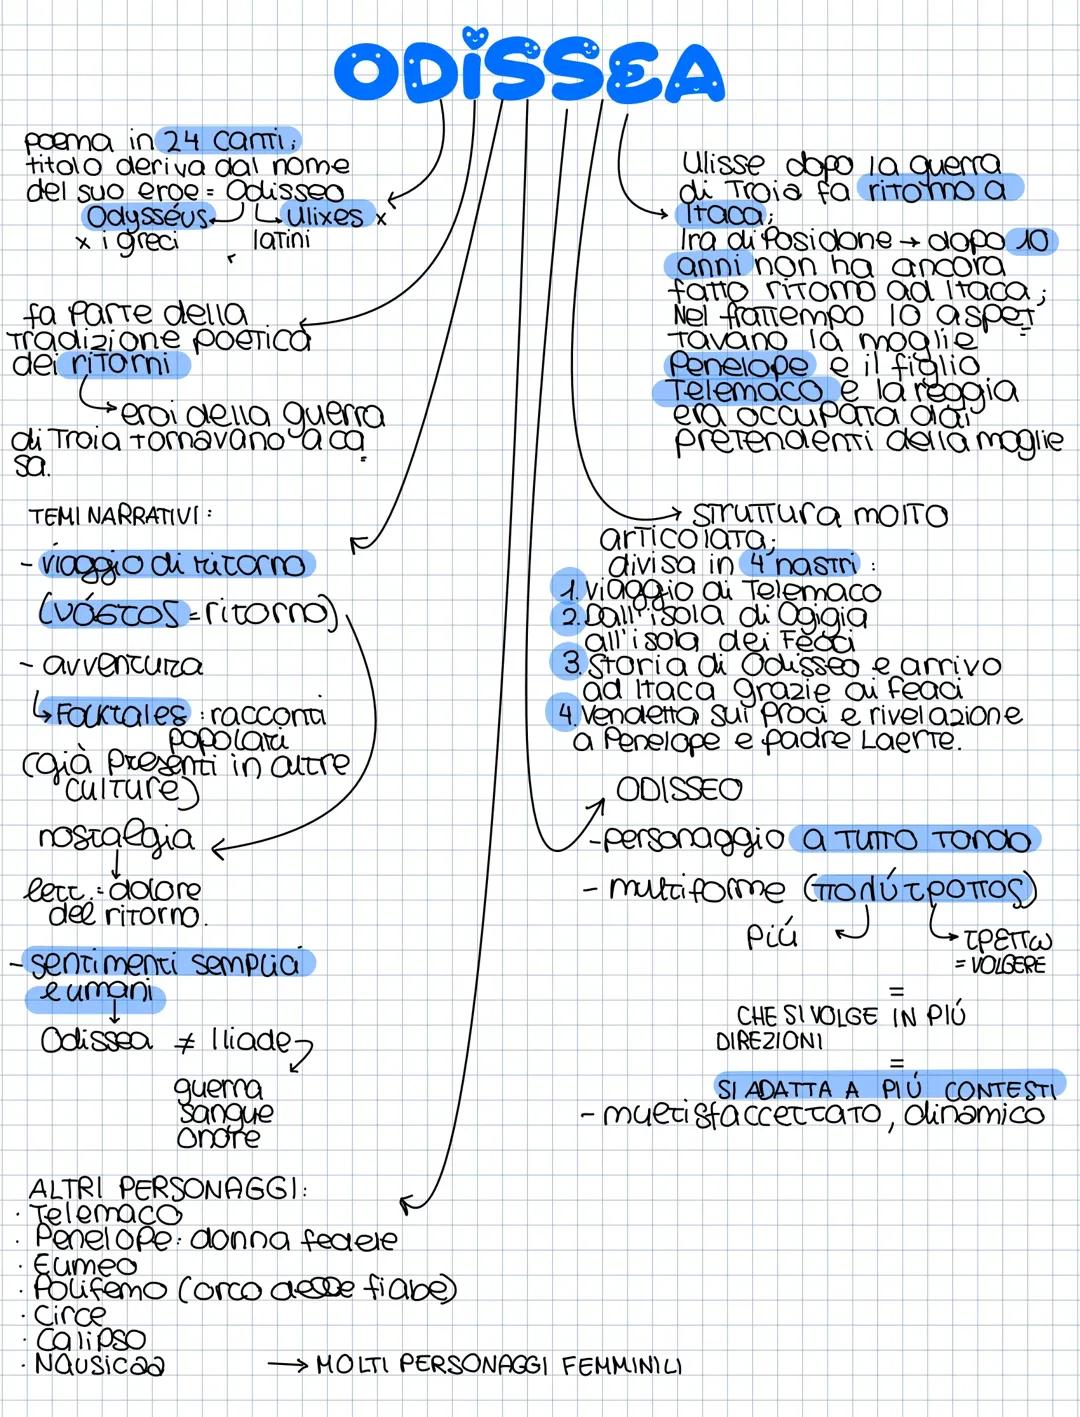 ODISSEA
poema in 24 canti;
titolo deriva dal nome
del suo eroe = Odisseo
Odysséus Ulixes x
x i greci latini
fa parte della
tradizione poetica
dei ritorni
eroi della guerra
di Troia tornavano a ca
sa.
TEMI NARRATIVI:
- viaggio di ritorno
(νόστος = ritorno)
- avventura
Folktales: racconti
popolari
(già presenti in altre
culture)
nostalgia
lett.= dolore
del ritorno.
- sentimenti semplici
e umani
Odissea ≠ Iliade
guerra
sangue
onore
ALTRI PERSONAGGI:
· Telemaco
· Penelope: donna fedele
· Eumeo
· Polifemo (orco delle fiabe)
· Circe
· Calipso
· Nausicaa → MOLTI PERSONAGGI FEMMINILI
Ulisse dopo la guerra
di Troia fa ritorno a
Itaca;
Ira di Posidone → dopo 10
anni non ha ancora
fatto ritorno ad Itaca;
Nel frattempo lo aspet
tavano la moglie
Penelope e il figlio
Telemaco e la reggia
era occupata dai
pretendenti della moglie
struttura molto
articolata;
divisa in 4 nastri:
1. Viaggio di Telemaco
2. Dall'isola di Ogigia
all'isola dei Feaci
3. Storia di Odisseo e arrivo
ad Itaca grazie ai feaci
4. Vendetta sui Proci e rivelazione
a Penelope e padre Laerte.
ODISSEO
- personaggio a tutto tondo
- multiforme (πολύτροπος)
più τρεπω
= VOLGERE
=
CHE SI VOLGE IN PIÚ
DIREZIONI
=
SI ADATTA A PIÚ CONTESTI
- multisfaccettato, dinamico